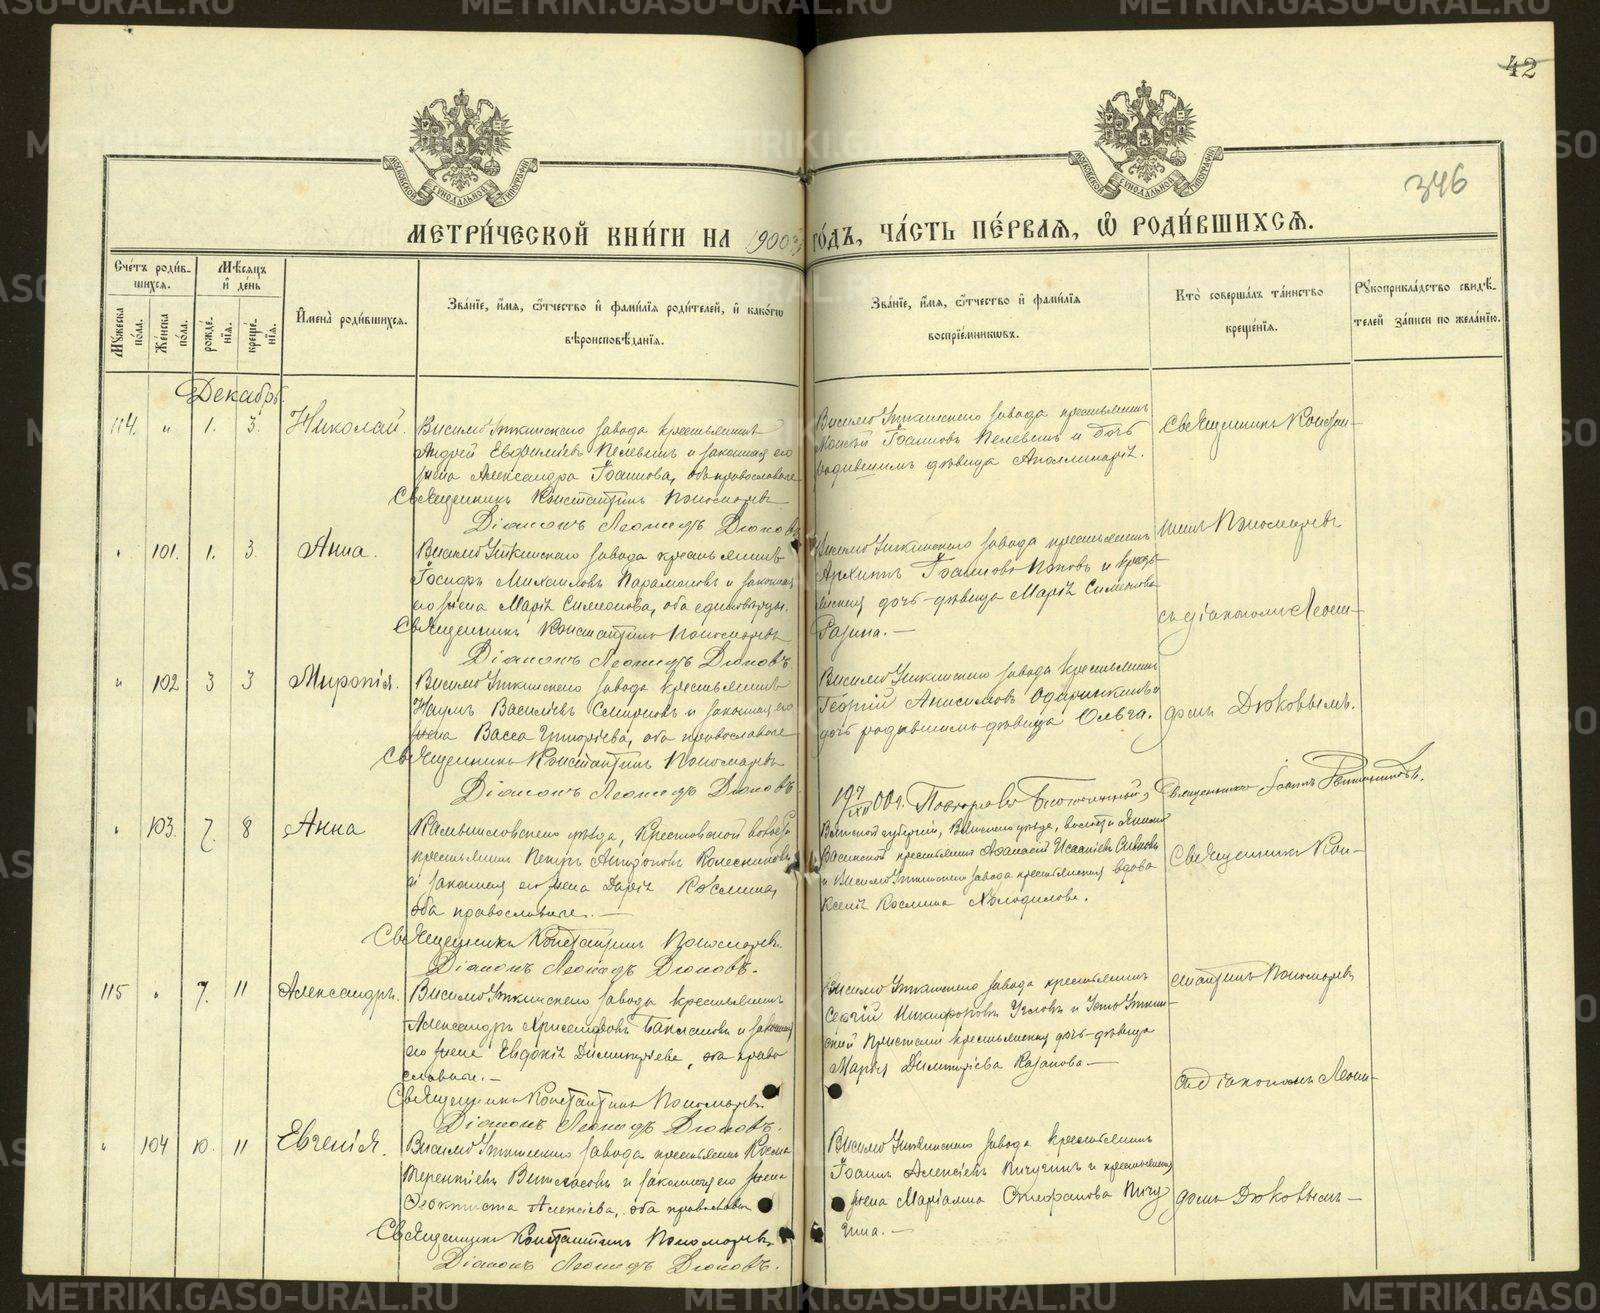 42
346
МЕТРИ́ЧЕСКОЙ КНИ́ГИ НА 1900 ГО́ДЪ, ЧА́СТЬ ПЕ́РВАЯ, Ѽ РОДИ́ВШИХСЯ.
Сче́тъ роди́в-
шихся.
Мꙋжеска по́ла.
Же́нска по́ла.
Мѣ́сяцъ и де́нь
рожде́нія.
креще́нія.
И҆мена̀ роди́вшихся.
Зва́нїе, и҆́мя, ѻ҆́тчество и҆ фами́лїя роди́телей, и҆ како́гѡ
вѣроисповѣ́данїя.
Зва́нїе, и҆́мя, ѻ҆́тчество и҆ фами́лїя
воспрїе́мникѡвъ.
Кто̀ соверша́лъ та́инство
креще́нїя.
Рꙋкоприкла́дство свидѣ́-
телей за́писи по жела́нїю.
Декабрь
114. " 1. 3. Николай.
Висимо Уткинскаго завода крестьянинъ
Андрей Евфиміевъ Пелевинъ и законная его
жена Александра Іоаннова, оба православные
Священникъ Константинъ Пономаревъ
Діаконъ Леонидъ Дюковъ
Висимо Уткинскаго завода крестьянинъ
Іоанновъ Пелевинъ и дочь
девица Аполлинарія.
Священникъ Констан-
" 101. 1. 3. Анна.
Висимо Уткинскаго завода крестьянинъ
Іосифъ Михаиловъ Парамоновъ и законная
его жена Марія Симеонова, оба единоверцы.
Священникъ Константинъ Пономаревъ
Діаконъ Леонидъ Дюковъ
Висимо Уткинскаго завода крестьянинъ
Архипъ Іоанновъ Поповъ и кресть-
янская дочь-девица Марія Симеонова
тинъ Пономаревъ
съ діакономъ Леони-
" 102 3 3 Миропія.
Висимо Уткинскаго завода крестьянинъ
Наумъ Васильевъ Смирновъ и законная его
жена Васса Григорьева, оба православные
Священникъ Константинъ Пономаревъ
Діаконъ Леонидъ Дюковъ
Висимо Уткинскаго завода крестьянинъ
Георгій Анисимовъ
дочь девица Ольга.
домъ Дюковымъ.
19 7/XII 00 г. Священникъ Іоаннъ
" 103. 7. 8 Анна
Камышловскаго уезда, Крестовской волости
крестьянинъ Петръ Колесниковъ
и законная его жена Дарія Космина,
оба православные. —
Священникъ Константинъ Пономаревъ.
Діаконъ Леонидъ Дюковъ.
Вятской губерніи, Вятскаго уезда, волости
крестьянинъ Афанасій
и Висимо Уткинскаго завода крестьянская вдова
Ксенія Космина Холодилова.
Священникъ Кон-
115 " 7. 11 Александръ.
Висимо Уткинскаго завода крестьянинъ
Александръ Баклановъ и законная
его жена Евдокія Димитріева, оба право
славные. —
Священникъ Константинъ Пономаревъ
Діаконъ Леонидъ Дюковъ.
Висимо Уткинскаго завода крестьянинъ
Сергій Никифоровъ и Усть Уткин-
ской Пристани крестьянская дочь-девица
Марія Димитріева Казакова —
стантинъ Пономаревъ
съ діакономъ Леони-
" 104 10. 11 Евгенія.
Висимо Уткинскаго завода крестьянинъ Косма
Терентіевъ и законная его жена
Феоктиста Алексіева, оба православн
Священникъ Константинъ Пономаревъ
Діаконъ Леонидъ Дюковъ.
Висимо Уткинскаго завода крестьянинъ
Іоаннъ Алексіевъ Пичугинъ и крестьянская
жена Маріанна Стефанова Пичу
гина. —
домъ Дюковымъ —
METRIKI.GASO-URAL.RU